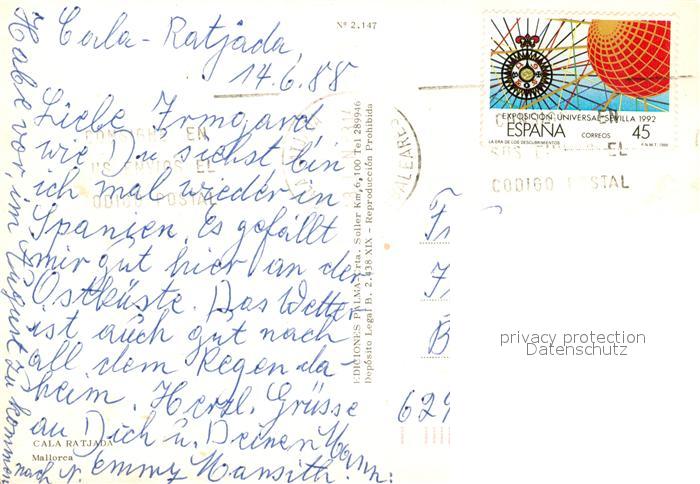 Cala-Ratjada,
14.6.88
Liebe Irmgard
wie Du siehst bin
ich mal wieder in
Spanien. Es gefällt
mir gut hier an der
Ostküste. Das Wetter
ist auch gut nach
all dem Regen da-
heim. Herzl. Grüsse
an Dich u. Deinen Mann.
Emmy
Habe vor, im August zu kommen
nach
Nº 2.147
EDICIONES PALMA-Crta. Soller Km, 6,100 Tel 289946
Depósito Legal B. 2.438-XIX - Reproducción Prohibida
CALA RATJADA
Mallorca
EXPOSICION UNIVERSAL SEVILLA 1992
ESPAÑA
CORREOS
45
LA ERA DE LOS DESCUBRIMIENTOS
F.N.M.T. 1988
EN
EL
CODIGO POSTAL
BALEARES
EN
EL
CODIGO POSTAL
F
B
629
privacy protection
Datenschutz